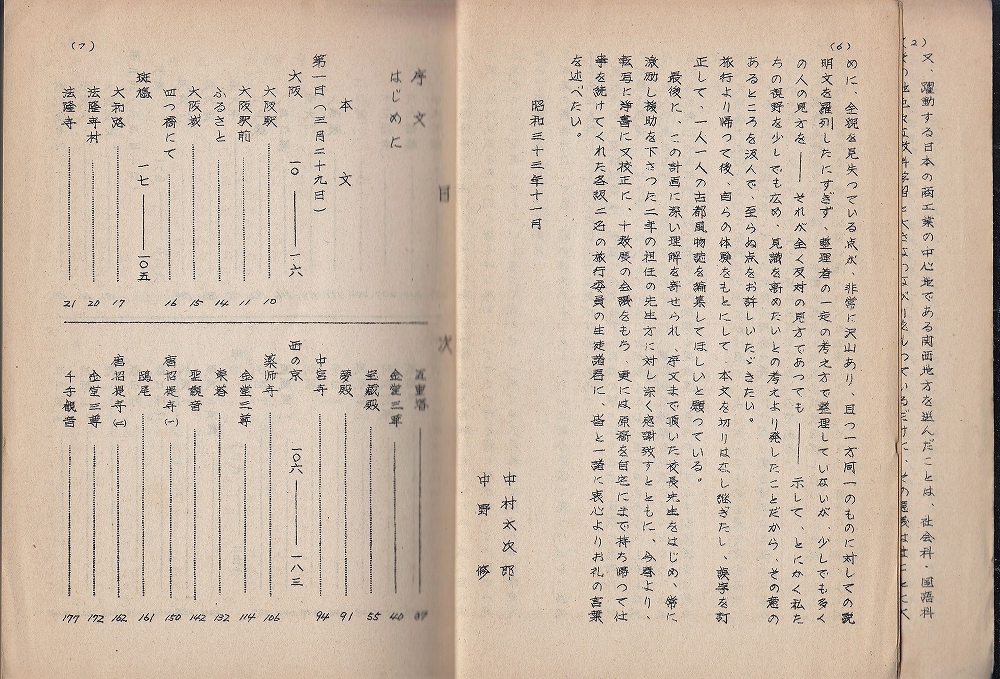 (2)
又、躍動する日本の商工業の中心地である関西地方を選んだことは、社会科・国語科
(6)
めに、全貌を見失つている点が、非常に沢山あり、且つ一方同一のものに対しての説
明文を羅列したにすぎず、整理者の一定の考え方で整理していないが、少しでも多く
の人の見方を――それが全く反対の見方であつても――示して、とにかく私た
ちの視野を少しでも広め、見識を高めたいとの考えより発したことだから、その意の
あるところを汲んで、至らぬ点をお許しいたゞきたい。
旅行より帰つて後、自らの体験をもとにして、本文を切りはなし継ぎたし、誤字を訂
正して、一人一人の古都風物誌を編集してほしいと願つている。
最後に、この計画に深い理解を寄せられ、序文まで頂いた校長先生をはじめ、常に
激励し援助を下さつた二年の担任の先生方に対し深く感謝致すとともに、今春より、
転写に浄書に又校正に、十数度の会議をもち、更には原稿を自宅にまで持ち帰つては
筆を続けてくれた各級二名の旅行委員の生徒諸君に、皆と一諸に衷心よりお礼の言葉
を述べたい。
昭和三十三年十一月
中村太次郎
中野 修
(7)
目 次
序文
はじめに
本 文
第一日(三月二十九日)
大阪 一〇――一六
大阪駅 10
大阪駅前 11
ふるさと 14
大阪城 15
四つ橋にて 16
斑鳩 一七――一〇五
大和路 17
法隆寺村 20
法隆寺 21
五重塔 39
金堂三尊 40
宝蔵殿 55
夢殿 91
中宮寺 94
西の京 一〇六――一八三
薬師寺 106
金堂三尊 114
東塔 132
聖観音 142
唐招提寺(一) 150
鴟尾 161
唐招提寺(二) 162
金堂三尊 172
千手観音 177